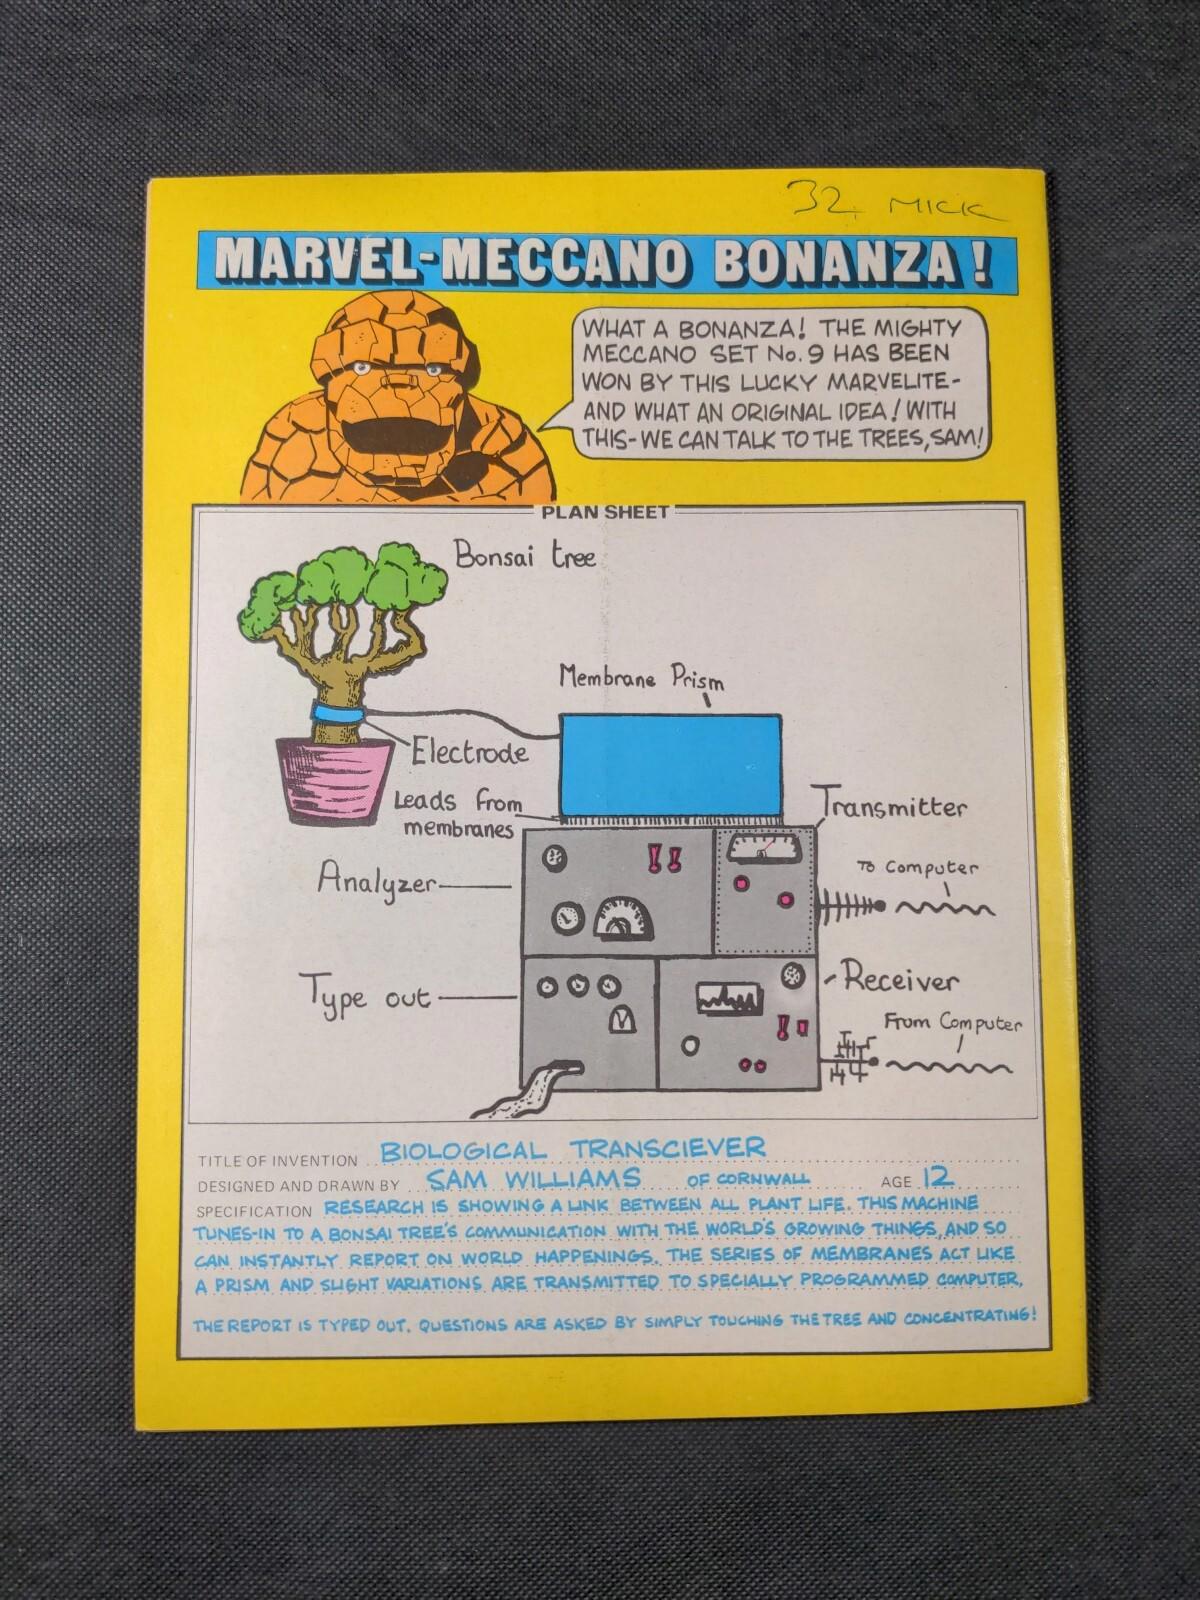 32, MICK
MARVEL-MECCANO BONANZA!
WHAT A BONANZA! THE MIGHTY
MECCANO SET No. 9 HAS BEEN
WON BY THIS LUCKY MARVELITE-
AND WHAT AN ORIGINAL IDEA! WITH
THIS-WE CAN TALK TO THE TREES, SAM!
PLAN SHEET
Bonsai tree
Membrane Prism
Electrode
Leads from
membranes
Transmitter
Analyzer
To Computer
Type out
Receiver
From Computer
TITLE OF INVENTION BIOLOGICAL TRANSCIEVER
DESIGNED AND DRAWN BY SAM WILLIAMS OF CORNWALL AGE 12
SPECIFICATION RESEARCH IS SHOWING A LINK BETWEEN ALL PLANT LIFE. THIS MACHINE
TUNES-IN TO A BONSAI TREE'S COMMUNICATION WITH THE WORLD'S GROWING THINGS, AND SO
CAN INSTANTLY REPORT ON WORLD HAPPENINGS. THE SERIES OF MEMBRANES ACT LIKE
A PRISM AND SLIGHT VARIATIONS ARE TRANSMITTED TO SPECIALLY PROGRAMMED COMPUTER.
THE REPORT IS TYPED OUT. QUESTIONS ARE ASKED BY SIMPLY TOUCHING THE TREE AND CONCENTRATING!